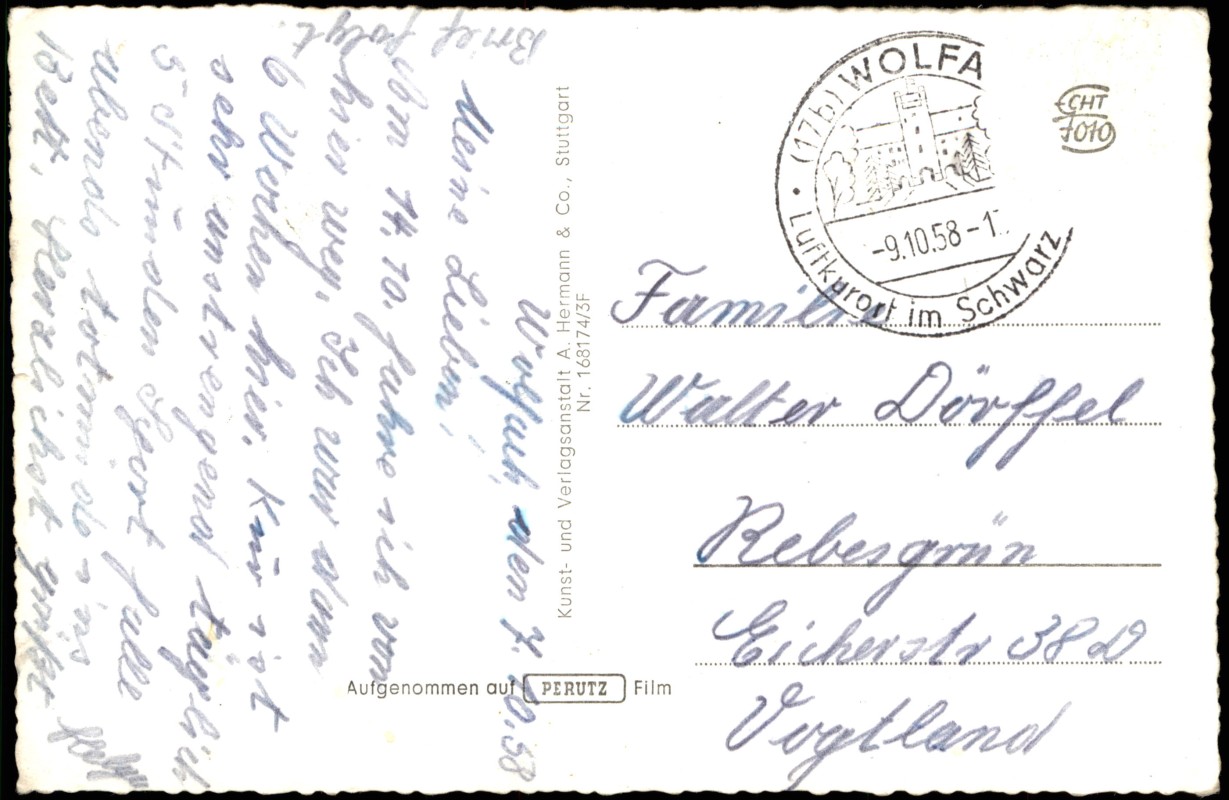 Wolfach, den 7.10.58
Meine Lieben!
Am 14.10. fahre ich von
hier weg, Ich war dann
6 Wochen hier. Kur ist
sehr anstrengend täglich
5 Stunden Sport falle
abends totmüde ins
Bett. Herzlichst grüßt
Brief folgt.
Kunst- und Verlagsanstalt A. Hermann & Co., Stuttgart
Nr. 168174/3F
Aufgenommen auf PERUTZ Film
(17b) WOLFA
-9.10.58-1
Luftkurort im Schwarz
ECHT
FOTO
Familie
Walter Dörffel
Rebesgrün
Eicherstr 38 D
Vogtland